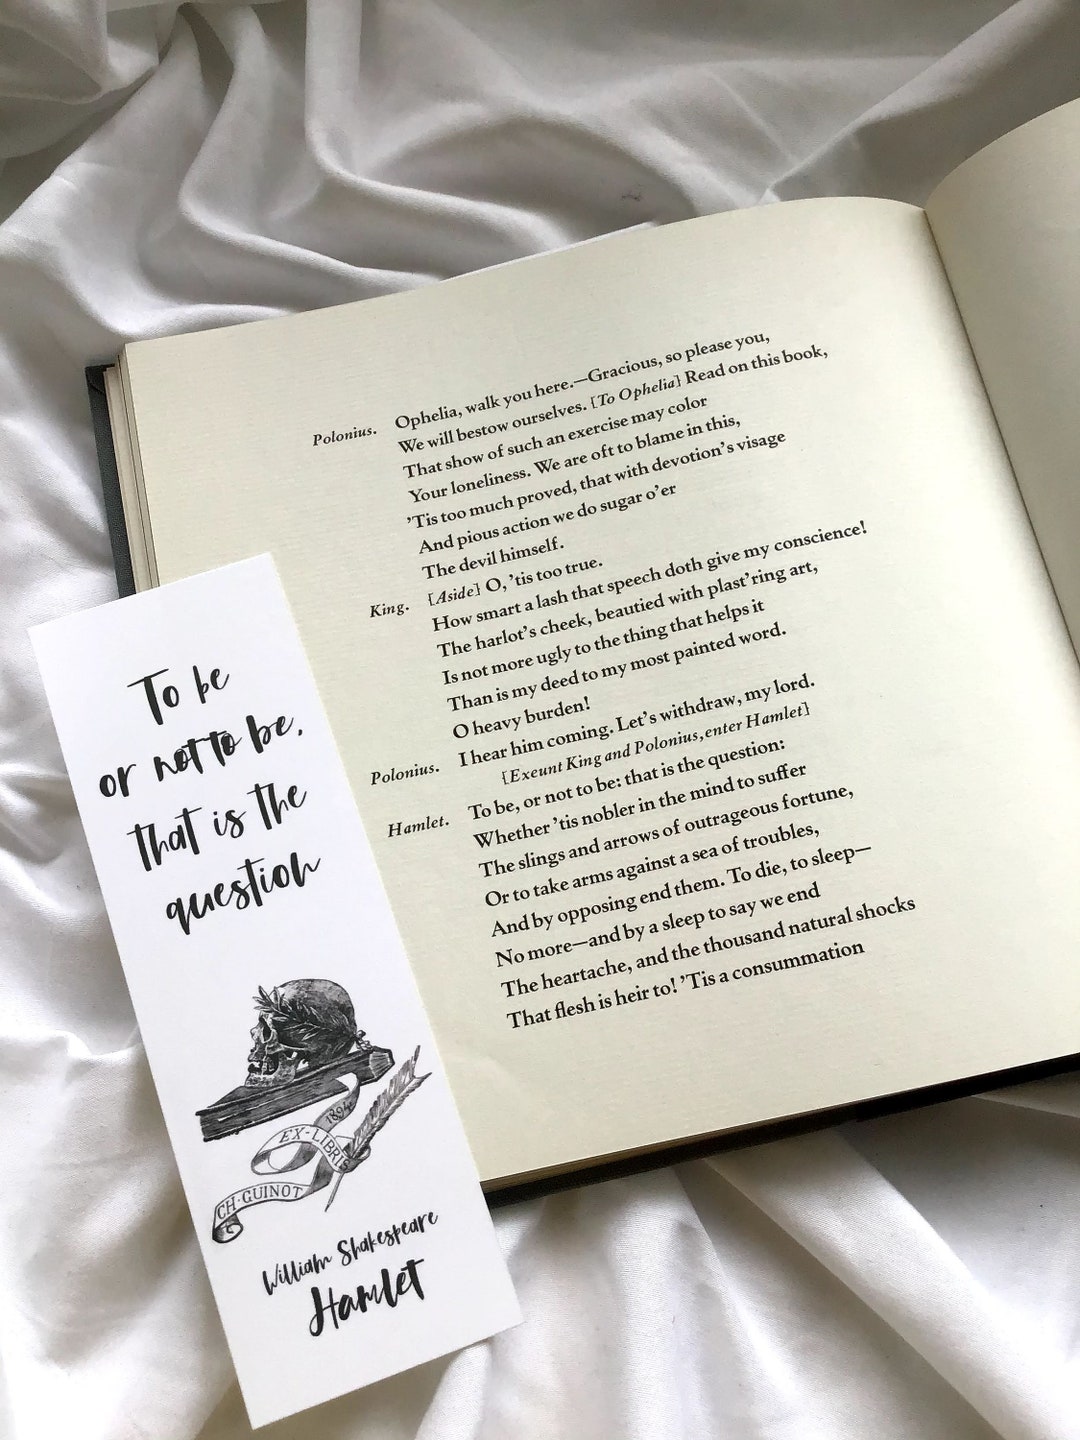 Polonius. Ophelia, walk you here.—Gracious, so please you,
We will bestow ourselves. [To Ophelia] Read on this book,
That show of such an exercise may color
Your loneliness. We are oft to blame in this,
’Tis too much proved, that with devotion’s visage
And pious action we do sugar o’er
The devil himself.
King. [Aside] O, ’tis too true.
How smart a lash that speech doth give my conscience!
The harlot’s cheek, beautied with plast’ring art,
Is not more ugly to the thing that helps it
Than is my deed to my most painted word.
O heavy burden!
Polonius. I hear him coming. Let’s withdraw, my lord.
[Exeunt King and Polonius, enter Hamlet]
Hamlet. To be, or not to be: that is the question:
Whether ’tis nobler in the mind to suffer
The slings and arrows of outrageous fortune,
Or to take arms against a sea of troubles,
And by opposing end them. To die, to sleep—
No more—and by a sleep to say we end
The heartache, and the thousand natural shocks
That flesh is heir to! ’Tis a consummation
To be
or not to be,
that is the
question
1894
EX-LIBRIS
CH·GUINOT
William Shakespeare
Hamlet